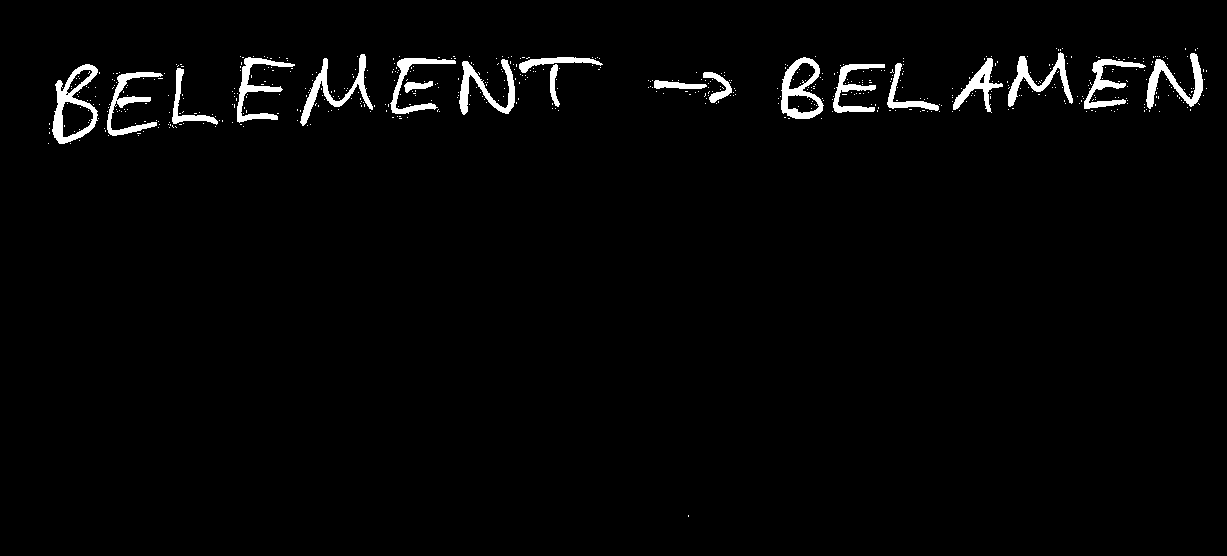 BELEMENT → BELAMEN